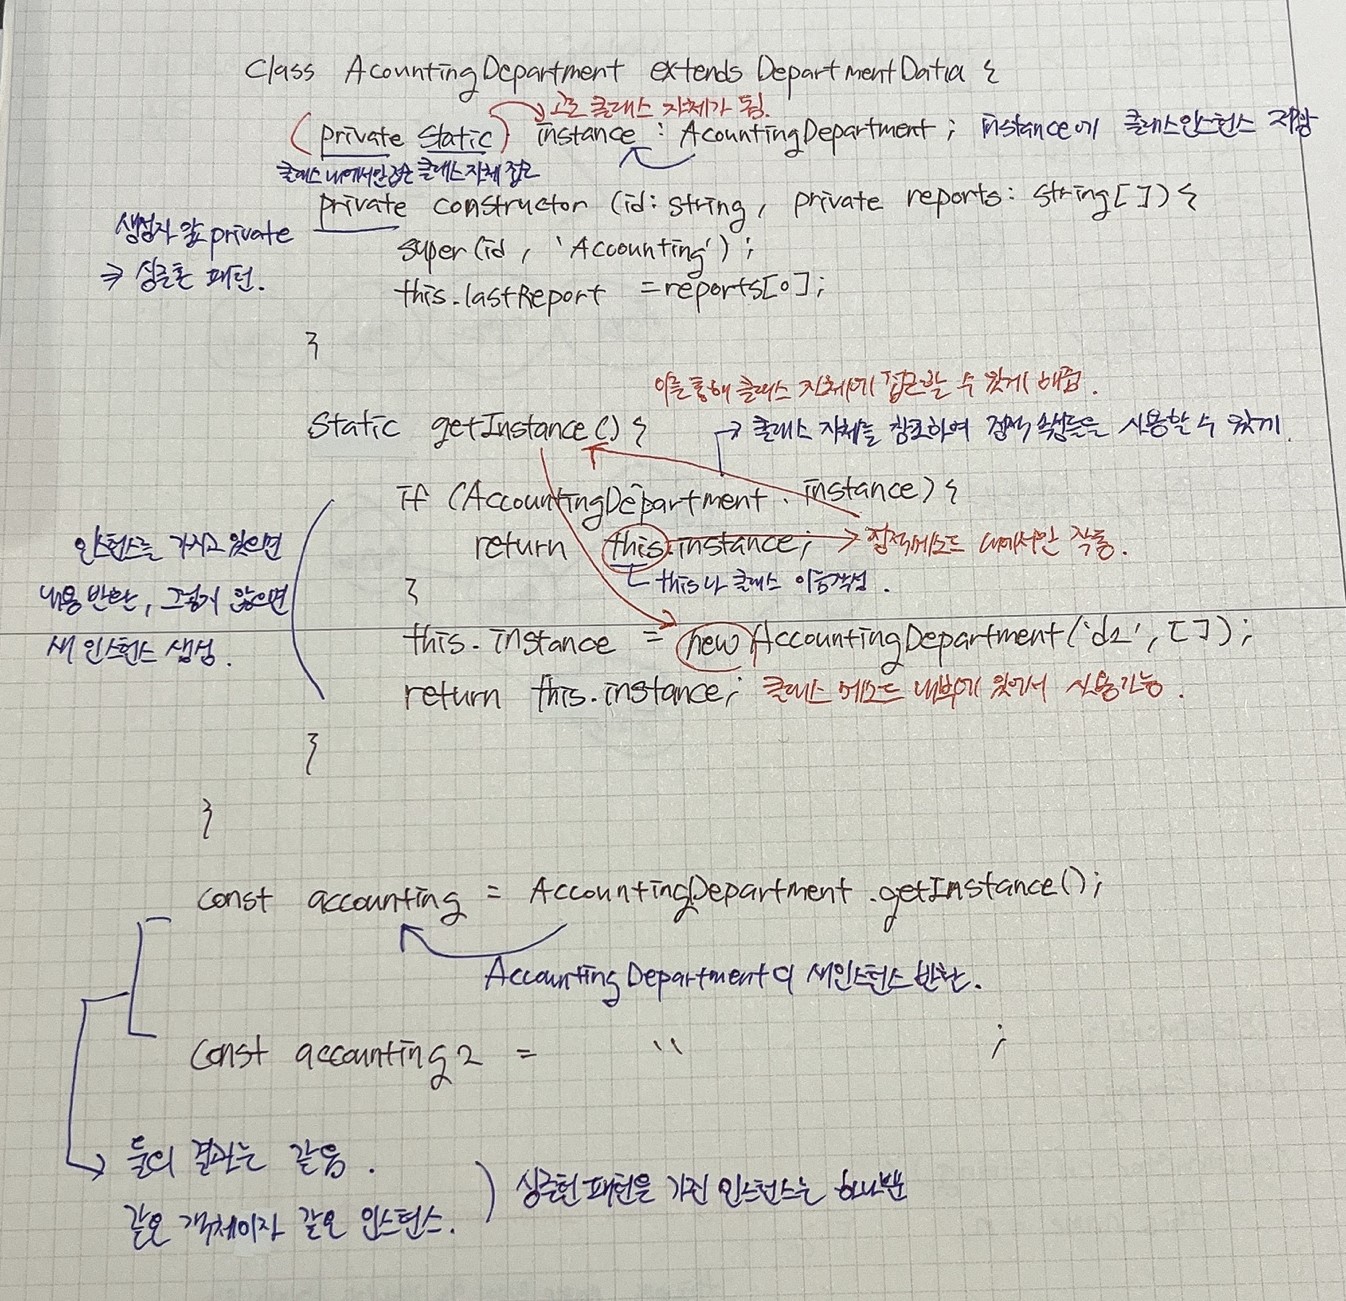 Class AcountingDepartment extends DepartmentData {
그로 클래스 자체가 됨.
(private static) instance : AcountingDepartment ; instance에 클래스인스턴스 저장
클래스 내에서만 접근 클래스 자체 접근
private constructor (id: string, private reports: string[]) {
생성자 앞 private
super(id, 'Accounting');
⇒ 싱글톤 패턴.
this.lastReport = reports[0];
}
이를 통해 클래스 자체에 접근할 수 있게 해줌.
static getInstance() {
→ 클래스 자체를 참조하여 정적 속성들을 사용할 수 있게.
if (AccountingDepartment.instance) {
return this.instance; → 정적메소드 내에서만 작동.
this나 클래스 이름작성.
}
인스턴스를 가지고 있으면
내용 반환, 그렇지 않으면
새 인스턴스 생성.
this.instance = new AccountingDepartment('d2', []);
return this.instance; 클래스 메소드 내부에 있어서 사용가능.
}
}
const accounting = AccountingDepartment.getInstance();
AccountingDepartment의 새인스턴스 반환.
const accounting2 = " ;
둘의 결과는 같음.
같은 객체이자 같은 인스턴스.
) 싱글턴 패턴을 가진 인스턴스는 하나뿐